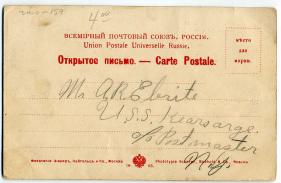 4 00
ВСЕМІРНЫЙ ПОЧТОВЫЙ СОЮЗЪ, РОССІЯ.
Union Postale Universelle Russie.
Открытое письмо. — Carte Postale.
мѣсто
для
марки.
Mr A R Ebrite
U.S.S. Kearsarge
c/o Postmaster
N.Y.
Москва
Phototypie Scherer, Nabholz & Co, Moscou